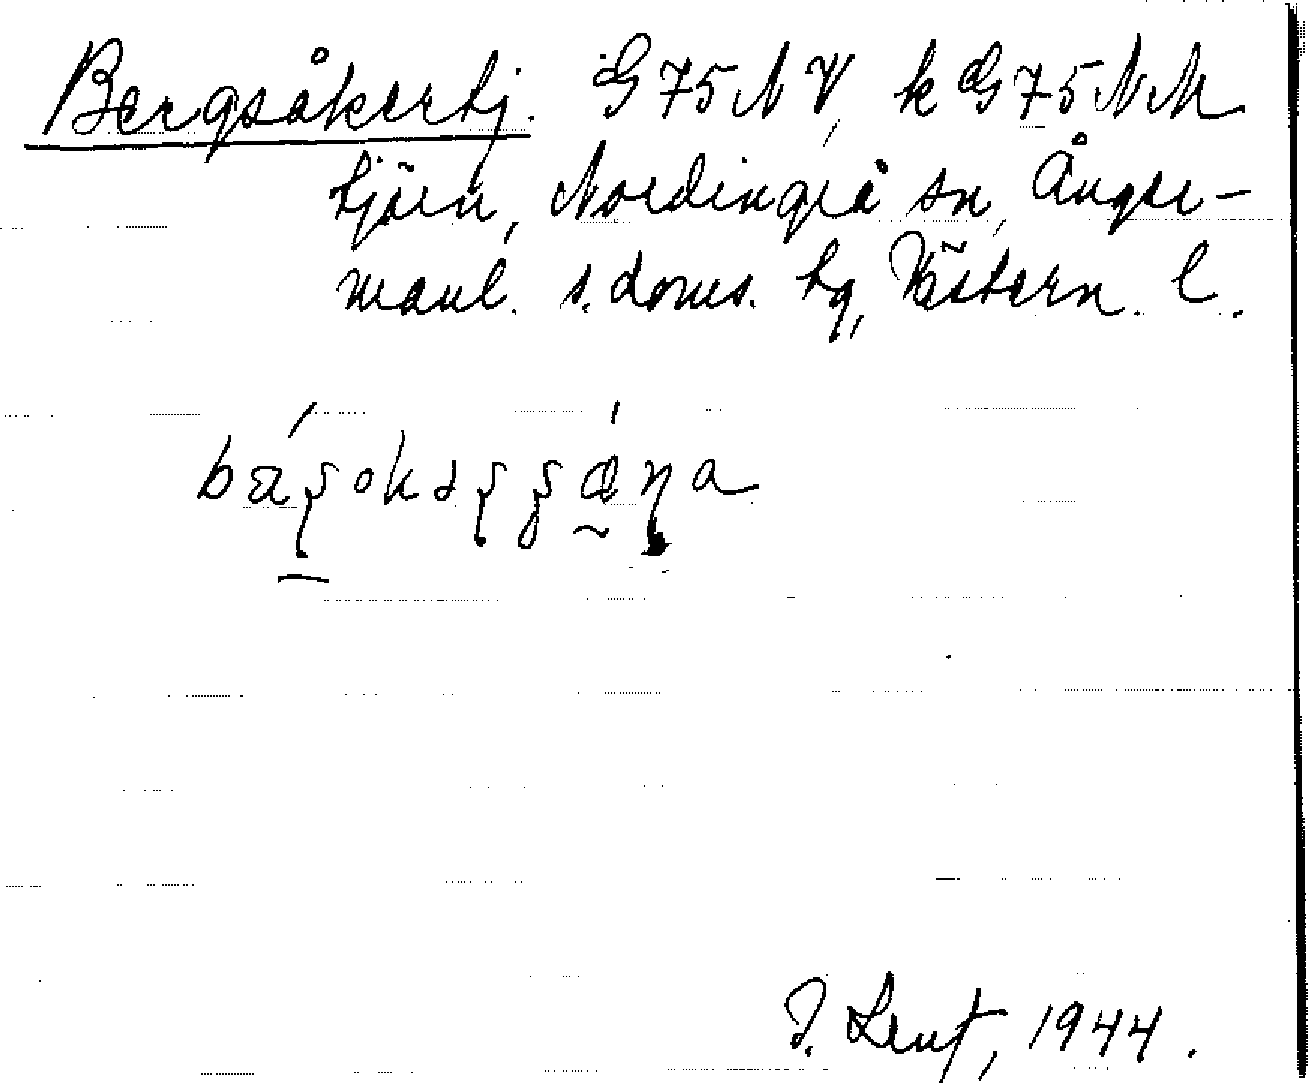 Bergsåkertj. G 75 N V, k G 75 N M
tjärn, Nordingrå sn, Ånger-
manl. s. doms. tg, Västern. l.
J. Lent, 1944.